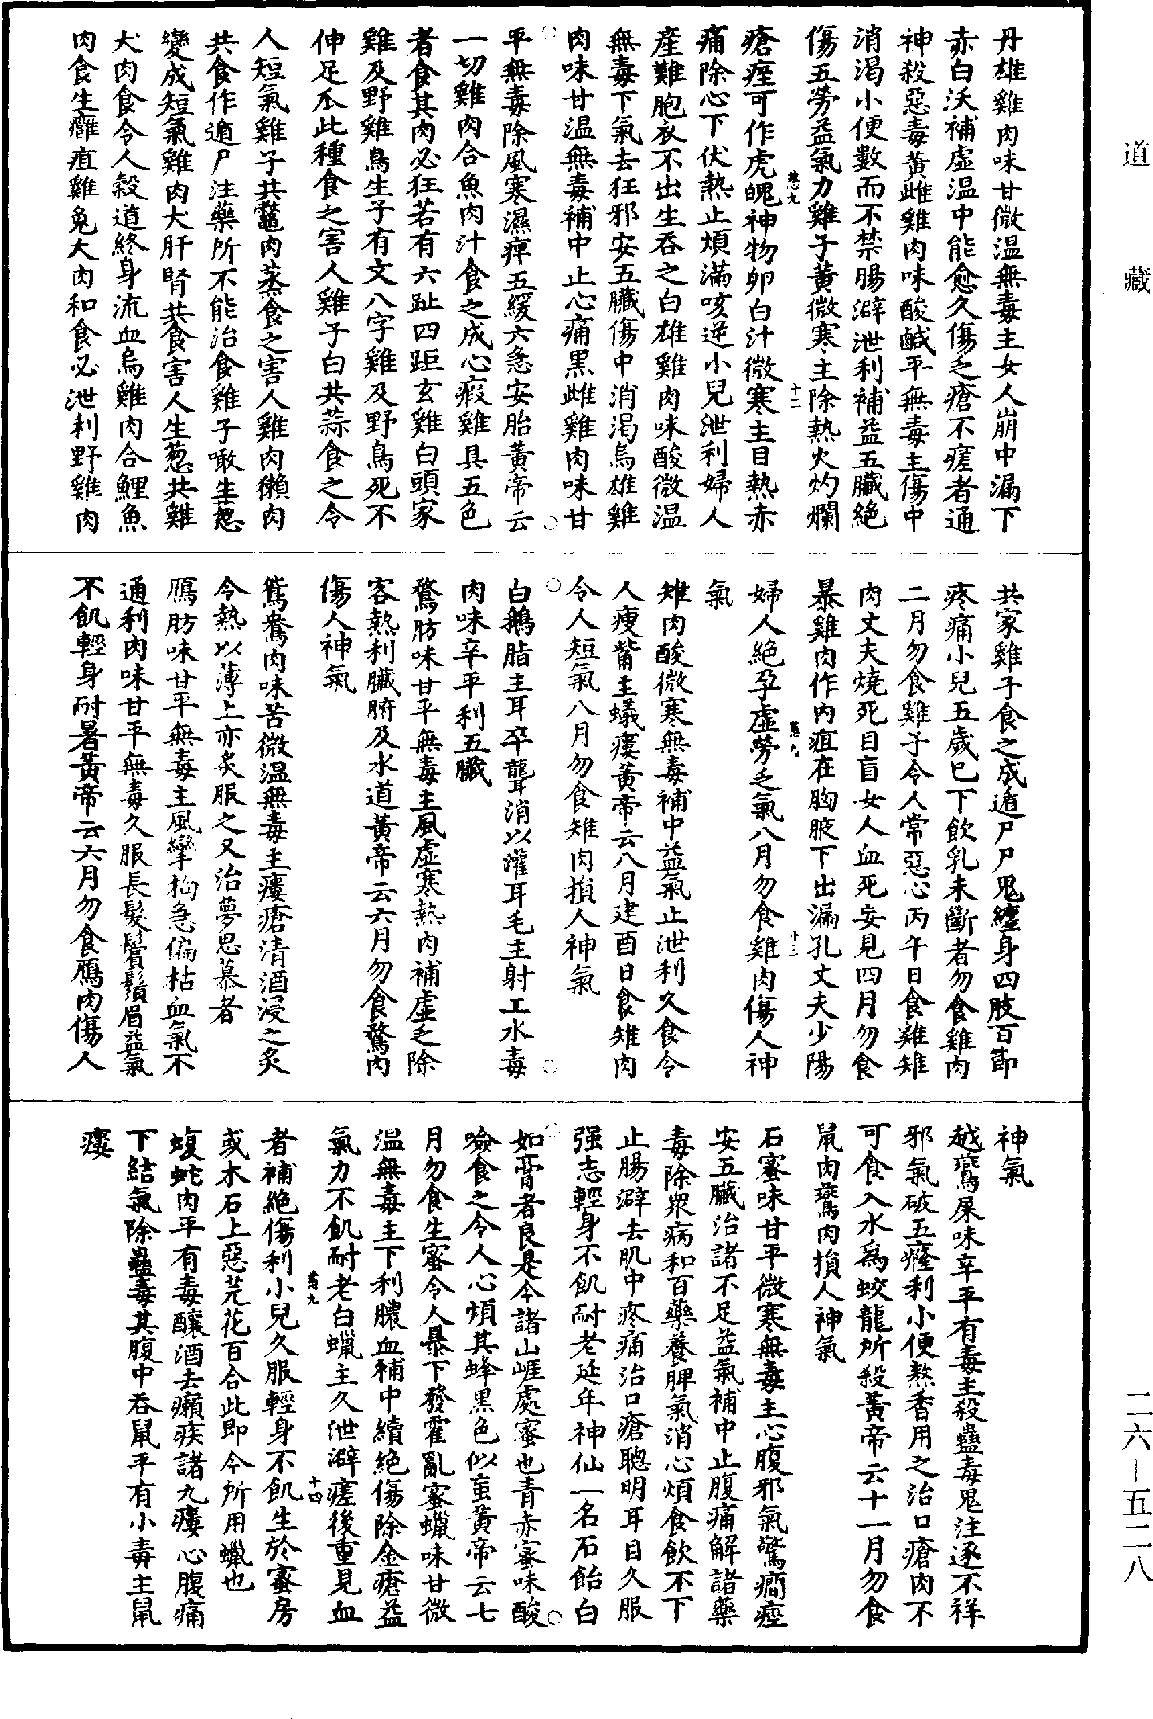 丹雄雞肉味甘微溫無毒主女人崩中漏下
赤白沃補虛溫中能愈久傷乏瘡不瘥者通
神殺惡毒黃雌雞肉味酸鹹平無毒主傷中
消渴小便數而不禁腸澼泄利補益五臟絕
傷五勞益氣力雞子黃微寒主除熱火灼爛
瘡痓可作虎魄神物卵白汁微寒主目熱赤
痛除心下伏熱止煩滿咳逆小兒泄利婦人
產難胞衣不出生吞之白雄雞肉味酸微溫
無毒下氣去狂邪安五臟傷中消渴烏雄雞
肉味甘溫無毒補中止心痛黑雌雞肉味甘
平無毒除風寒濕痺五緩六急安胎黃帝云
一切雞肉合魚肉汁食之成心瘕雞具五色
者食其肉必狂若有六趾四距玄雞白頭家
雞及野雞鳥生子有文八字雞及野鳥死不
伸足爪此種食之害人雞子白共蒜食之令
人短氣雞子共鼈肉蒸食之害人雞肉獺肉
共食作遁尸注藥所不能治食雞子噉生蔥
變成短氣雞肉犬肝腎共食害人生葱共雞
犬肉食令人穀道終身流血烏雞肉合鯉魚
肉食生癰疽雞兔犬肉和食必泄利野雞肉
共家雞子食之成遁尸尸鬼纏身四肢百節
疼痛小兒五歲已下飲乳未斷者勿食雞肉
二月勿食雞子令人常惡心丙午日食雞雉
肉丈夫燒死目盲女人血死妄見四月勿食
暴雞肉作內疽在胸腋下出漏孔丈夫少陽
婦人絕孕虛勞乏氣八月勿食雞肉傷人神
氣
雉肉酸微寒無毒補中益氣止泄利久食令
人瘦觜主蟻瘻黃帝云八月建酉日食雉肉
令人短氣八月勿食雉肉損人神氣
白鵝脂主耳卒聾消以灌耳毛主射工水毒
肉味辛平利五臟
鶩肪味甘平無毒主風虛寒熱肉補虛乏除
客熱利臟腑及水道黃帝云六月勿食鶩肉
傷人神氣
鴛鴦肉味苦微溫無毒主瘻瘡清酒浸之炙
令熱以薄上亦炙服之又治夢思慕者
鴈肪味甘平無毒主風攣拘急偏枯血氣不
通利肉味甘平無毒久服長髮鬢鬚眉益氣
不飢輕身耐暑黃帝云六月勿食鴈肉傷人
神氣
越鷰屎味辛平有毒主殺蠱毒鬼注逐不祥
邪氣破五癃利小便熬香用之治口瘡肉不
可食入水為蛟龍所殺黃帝云十一月勿食
鼠肉鷰肉損人神氣
石蜜味甘平微寒無毒主心腹邪氣驚癇痙
安五臟治諸不足益氣補中止腹痛解諸藥
毒除眾病和百藥養脾氣消心煩食飲不下
止腸澼去肌中疼痛治口瘡聰明耳目久服
强志輕身不飢耐老延年神仙一名石飴白
如膏者良是今諸山崖處蜜也青赤蜜味酸
噞食之令人心煩其蜂黑色似䖟黃帝云七
月勿食生蜜令人暴下發霍亂蜜蠟味甘微
溫無毒主下利膿血補中續絕傷除金瘡益
氣力不飢耐老白蠟主久泄澼瘥後重見血
者補絕傷利小兒久服輕身不飢生於蜜房
或木石上惡芫花百合此即今所用蠟也
蝮蛇肉平有毒釀酒去癩疾諸九瘻心腹痛
下結氣除蠱毒其腹中吞鼠平有小毒主鼠
瘻
道藏
二六—五二八